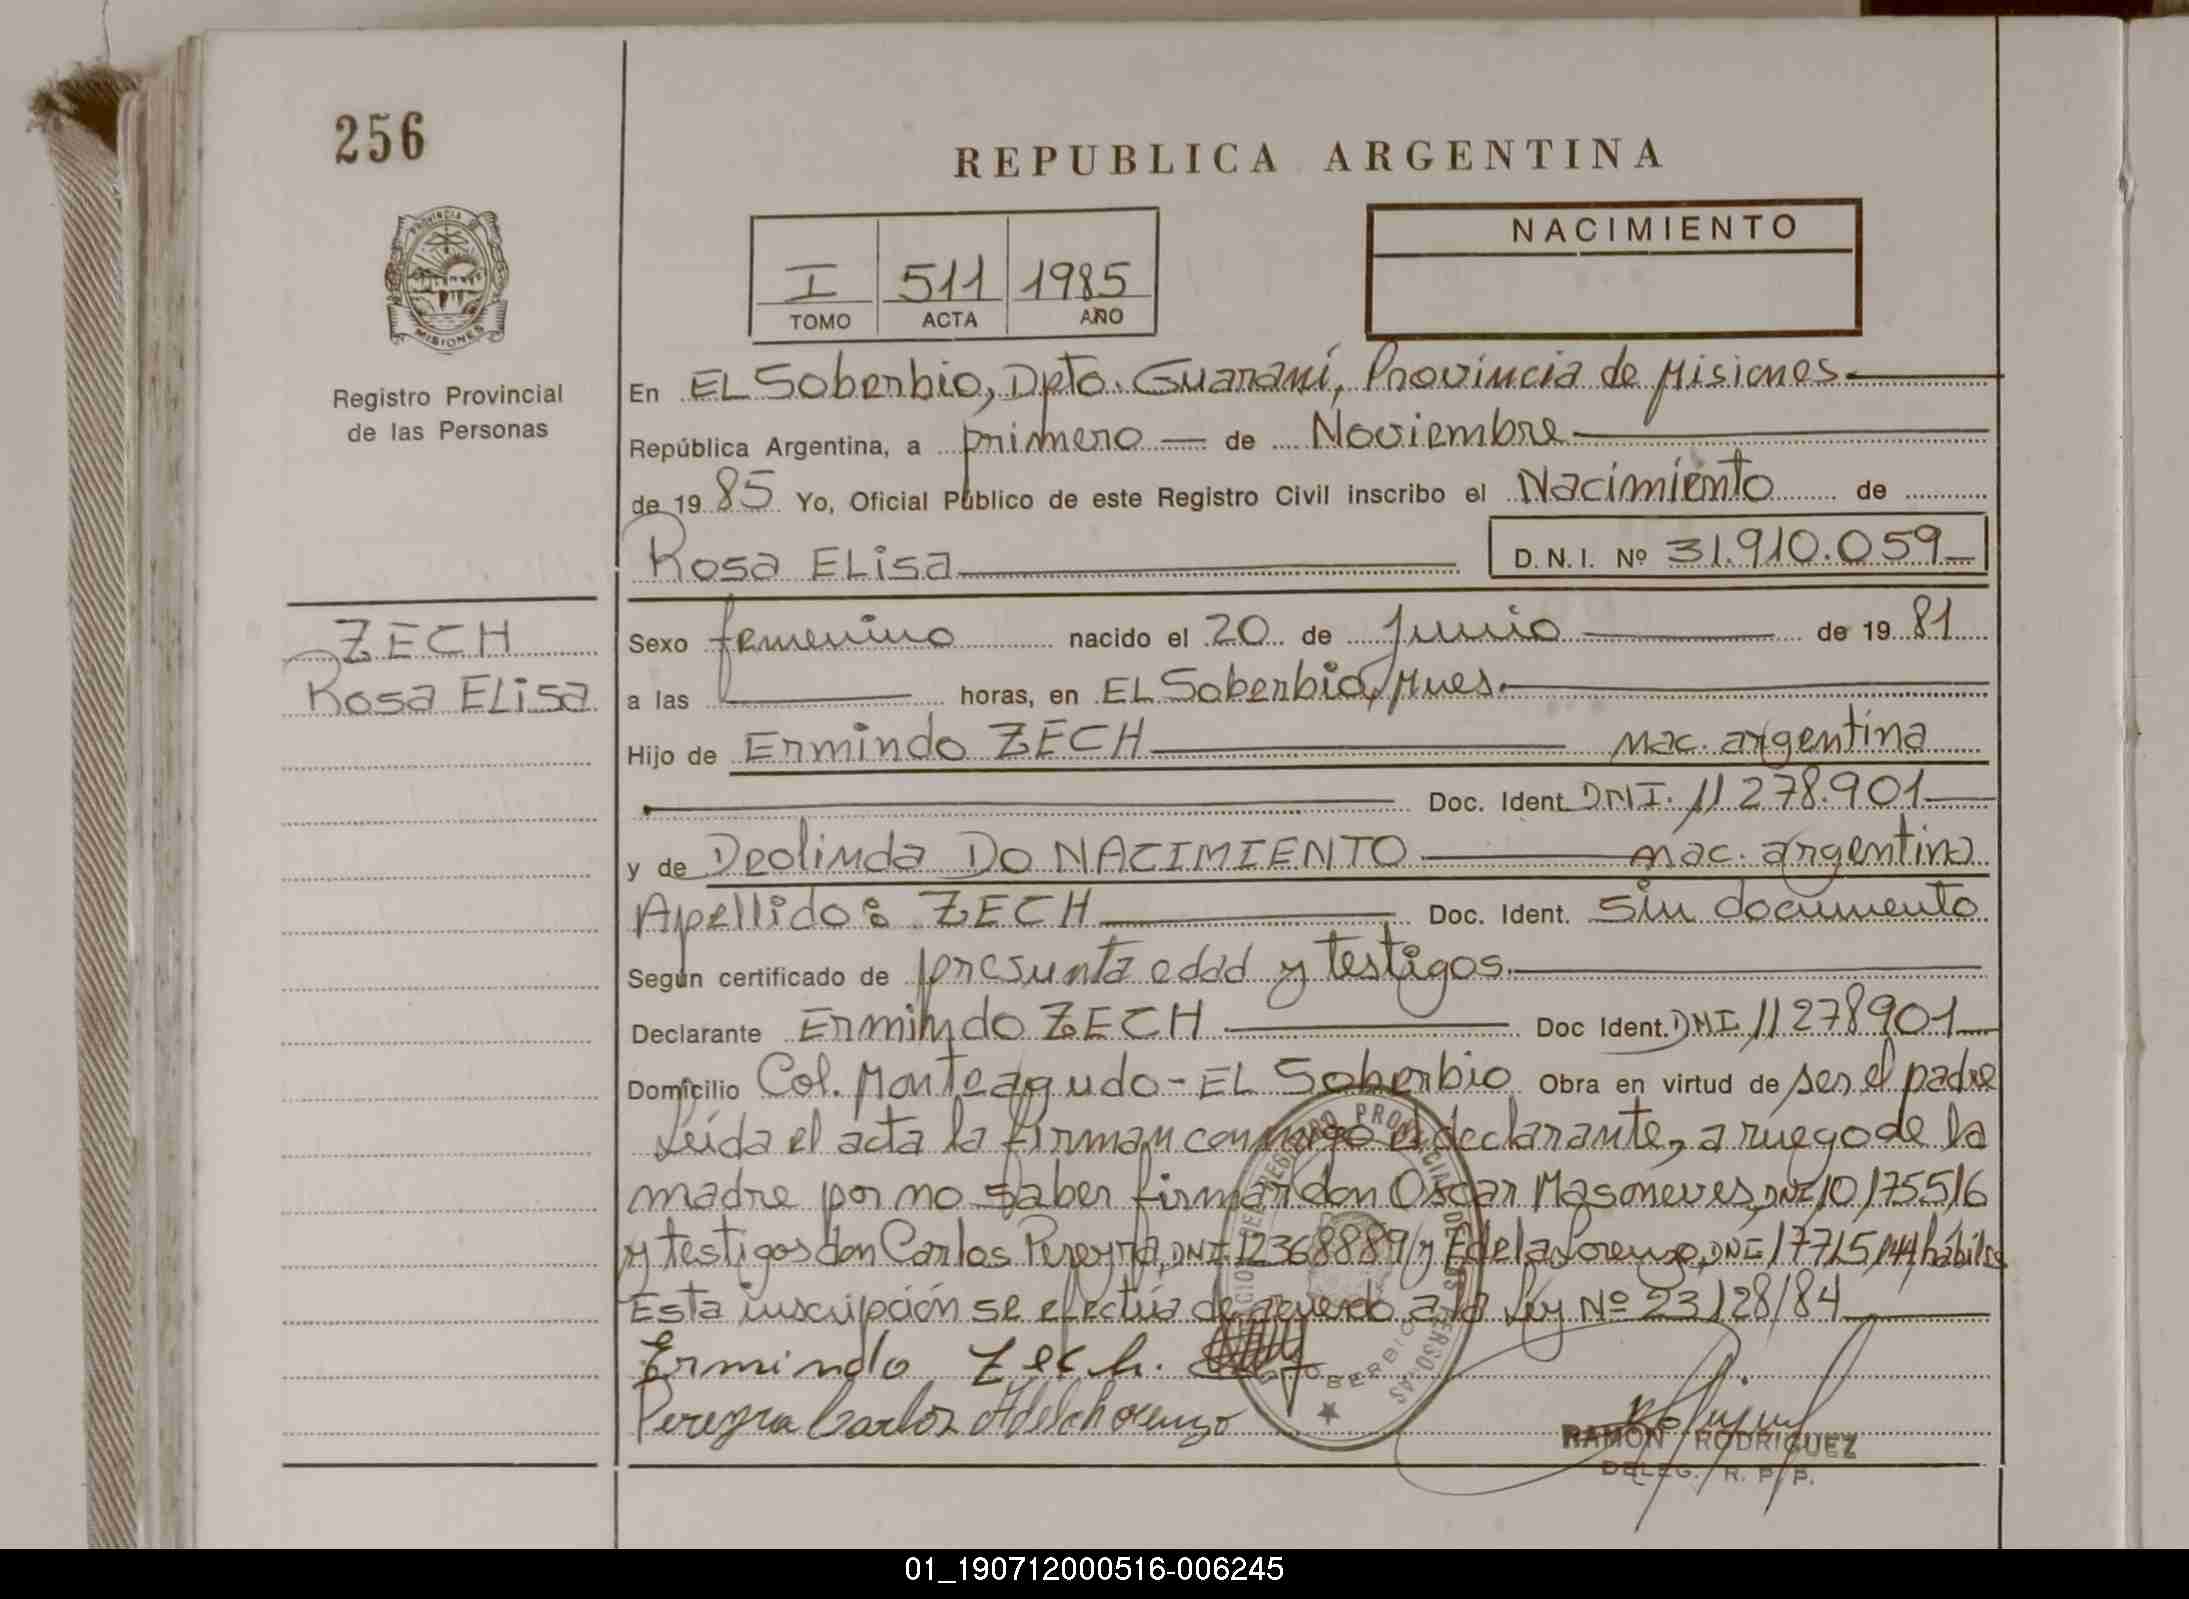 256
REPUBLICA ARGENTINA
PROVINCIA DE
MISIONES
Registro Provincial
de las Personas
I 511 1985
TOMO ACTA AÑO
NACIMIENTO
En EL Soberbio, Dpto. Guaraní, Provincia de Misiones
República Argentina, a primero de Noviembre
de 19 85 Yo, Oficial Público de este Registro Civil inscribo el Nacimiento de
Rosa ELisa D. N. I. Nº 31.910.059
ZECH
Rosa ELisa
Sexo femenino nacido el 20 de Junio de 19 81
a las horas, en EL Soberbio, Mnes.
Hijo de Ermindo ZECH nac. argentina
Doc. Ident. DNI. 11278.901
y de Deolinda DO NACIMIENTO nac. argentina
Apellido: ZECH Doc. Ident. sin documento
Según certificado de presunta edad y testigos.
Declarante Ermindo ZECH Doc Ident. DNI 11278901
Domicilio Col. Monteagudo - EL Soberbio Obra en virtud de ser el padre
Leída el acta la firman conmigo el declarante, a ruego de la
madre por no saber firmar don Oscar DNI 10175516
y testigos don Carlos Pereyra, DNI 12368889 y Lorenzo, DNI hábiles
Esta inscripción se efectúa de acuerdo a la Ley Nº 23128/84
Ermindo Zech.
Pereyra Carlos
RAMON RODRIGUEZ
DELEG. R. P. P.
01_190712000516-006245